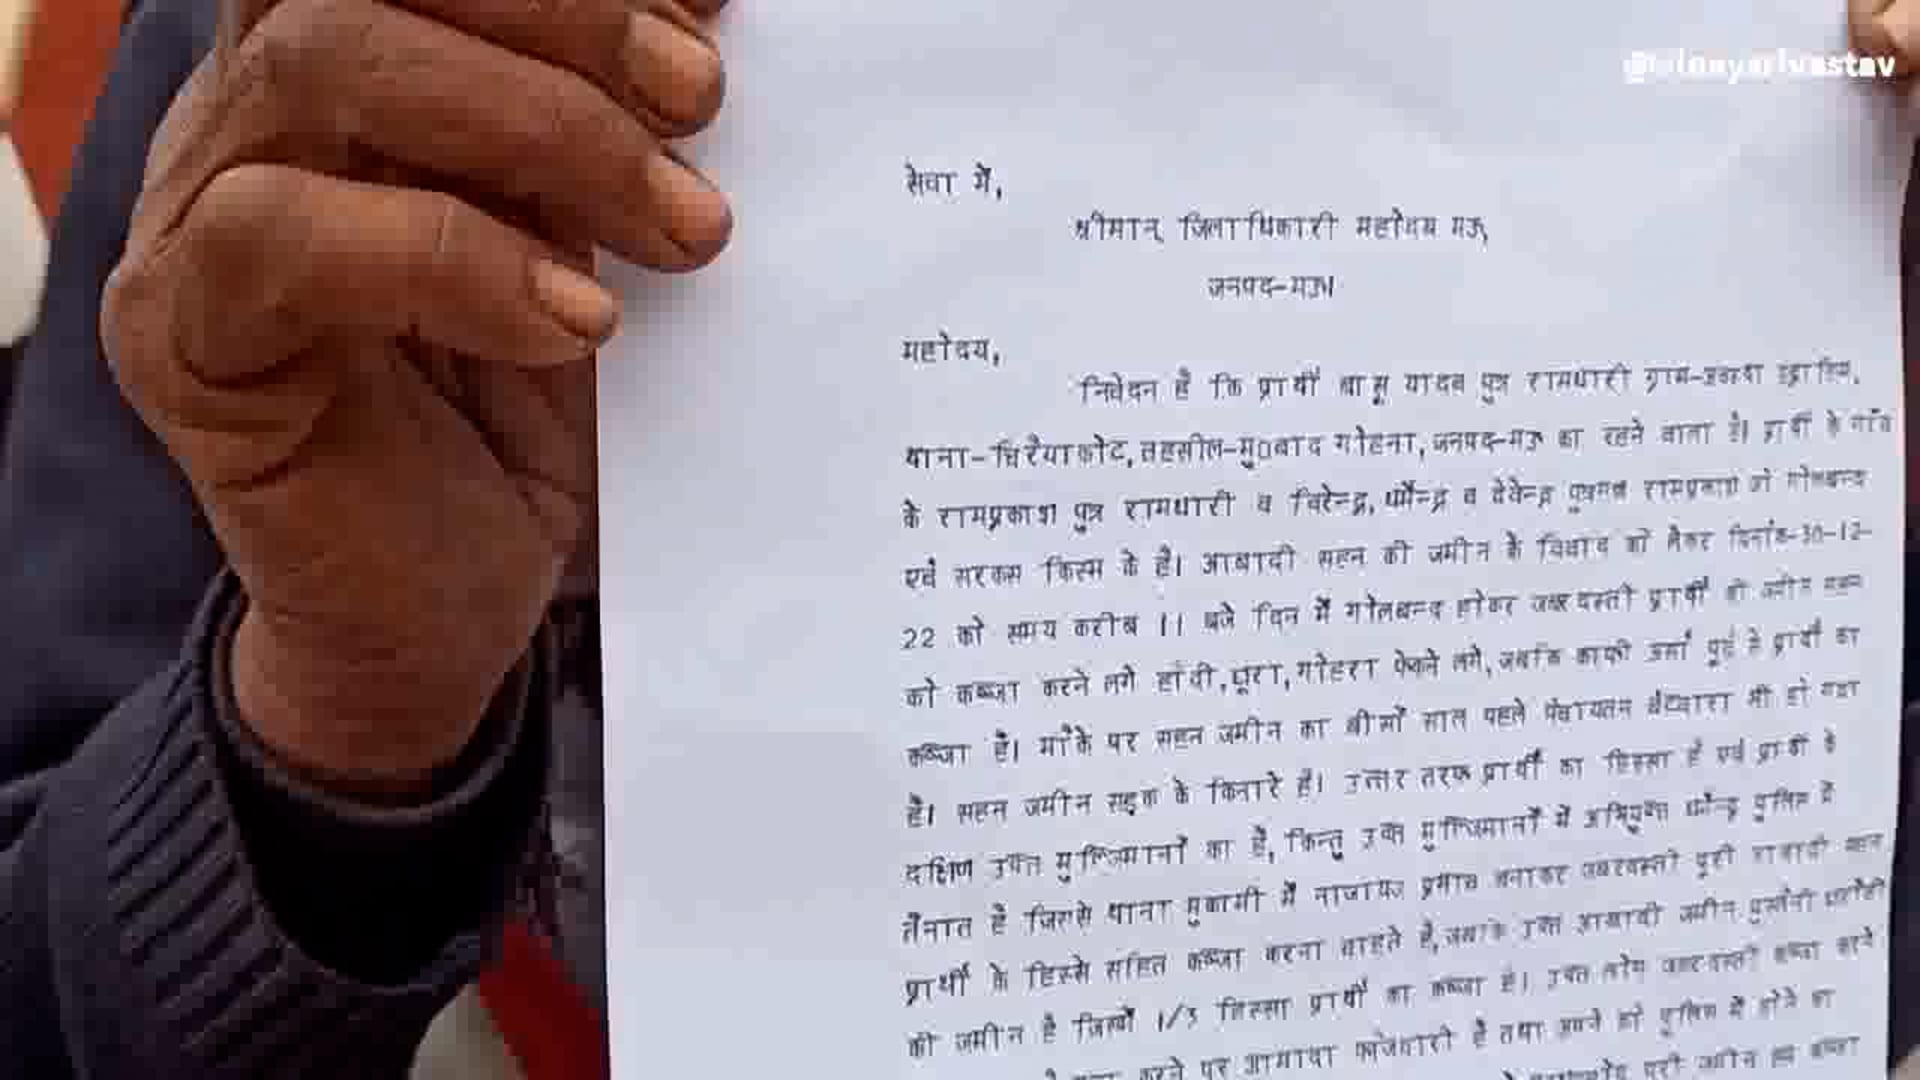 सेवा में,
श्रीमान् जिलाधिकारी महोदय मऊ
जनपद-मऊ।
महोदय,
निवेदन है कि प्रार्थी बासू यादव पुत्र रामधारी ग्राम-
थाना-चिरैयाकोट, तहसील-मु0बाद गोहना, जनपद-मऊ का रहने वाला है। प्रार्थी के गाँव
के रामप्रकाश पुत्र रामधारी व विरेन्द्र, धर्मेन्द्र व देवेन्द्र पुत्रगण रामप्रकाश जो गोलबन्द
एवं सरकस किस्म के है। आबादी सहन की जमीन के विवाद को लेकर दिनांक-30-12-
22 को समय करीब 11 बजे दिन में गोलबन्द होकर जबरदस्ती प्रार्थी की जमीन सहन
को कब्जा करने लगे हांदी, घूरा, गोहरा फेकने लगे, जबकि काफी अर्सा पूर्व से प्रार्थी का
कब्जा है। मौके पर सहन जमीन का बीसों साल पहले पंचायतन बंटवारा भी हो गया
है। सहन जमीन सड़क के किनारे है। उत्तर तरफ प्रार्थी का हिस्सा है एवं प्रार्थी के
दक्षिण उक्त मुल्जिमानों का है, किन्तु उक्त मुल्जिमानों में अभियुक्त धर्मेन्द्र पुलिस में
तैनात है जिससे थाना मुकामी में नाजायज प्रभाव बनाकर जबरदस्ती पूरी आबादी सहन
प्रार्थी के हिस्से सहित कब्जा करना चाहते है, जबकि उक्त आबादी जमीन पुस्तैनी
की जमीन है जिसमें 1/3 हिस्सा प्रार्थी का कब्जा है। उक्त लोग जबरदस्ती कब्जा करने
करने पर आमादा फौजदारी है तथा अपने को पुलिस में होने का
पूरी जमीन हम कब्जा